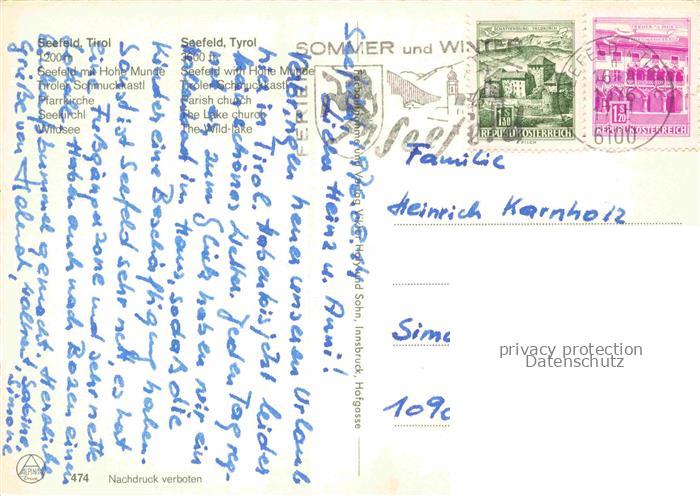 Seefeld, Tirol
1200 m
Seefeld mit Hohe Munde
Tiroler Schmuckkastl
Pfarrkirche
Seekirchl
Wildsee
Seefeld, Tyrol
3600 ft
Seefeld with Hohe Munde
Tiroler Schmuckkastl
Parish church
The Lake church
The Wild-lake
SOMMER und WINTER
FERIEN
Seefeld
6100
SCHATTENBURG - FELDKIRCH
1.80
REPUBLIK ÖSTERREICH
1.20
REPUBLIK ÖSTERREICH
Seefeld,
Liebe Heinz u. Anni!
Verbringen heuer unseren Urlaub
hier in Tirol. Haben bis jetzt leider
kein schönes Wetter. Jeden Tag reg-
net es. Zum Glück haben wir ein
im Haus, sodaß die
Kinder eine Beschäftigung haben.
Sonst ist Seefeld sehr nett, es hat
eine Fußgängerzone und sehr nette
Haben auch nach Bozen einen
gemacht. Herzliche
Grüße von Helmut, Sabine,
Simone
Verlag Walter Hofy und Sohn, Innsbruck, Hofgasse
Familie
Heinrich Karnholz
Sim
109
privacy protection
Datenschutz
ALPINA
Druck
474
Nachdruck verboten